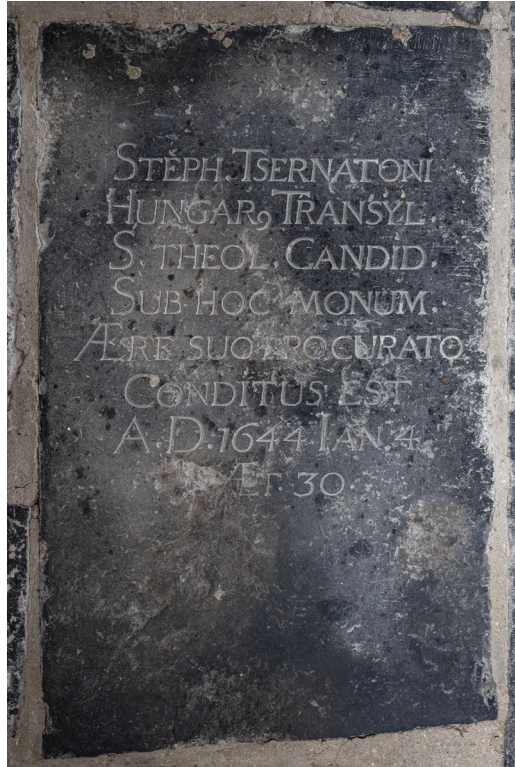 STEPH. TSERNATONI
HUNGARꝰ TRANSYL.
S. THEOL. CANDID.
SUB HOC MONUM.
ÆRE SUO PROCURATO
CONDITUS EST
A. D. 1644 IAN. 4.
ÆT. 30.